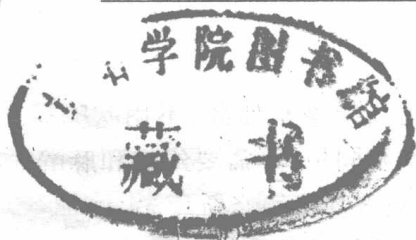 学院图书馆
藏书